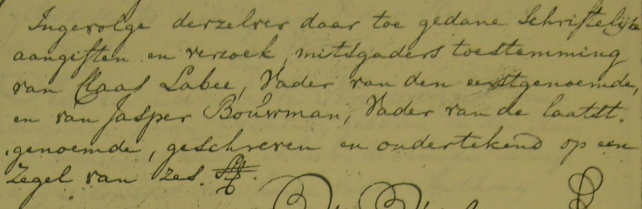 Ingevolge derzelver daar toe gedane Schriftelijke
aangiften en verzoek, mitsgaders toestemming
van Claas Labee, Vader van den eerstgenoemde,
en van Jasper Bouwman, Vader van de laatst-
genoemde, geschreven en ondertekend op een
Zegel van zes.